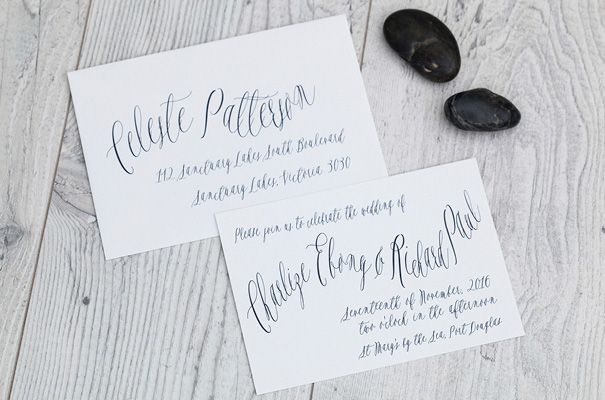 Celeste Patterson
142 Sanctuary Lakes South Boulevard
Sanctuary Lakes, Victoria 3030
Please join us to celebrate the wedding of
Charlize Ebong & Richard Paul
Seventeenth of November, 2016
two o'clock in the afternoon
St Mary's by the Sea, Port Douglas